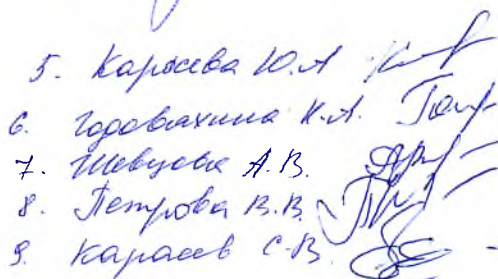 5. Карасева Ю.А
6. Годовахина К.А.
7. Шевцова А.В.
8. Петрова В.В.
9. Карасев С.В.